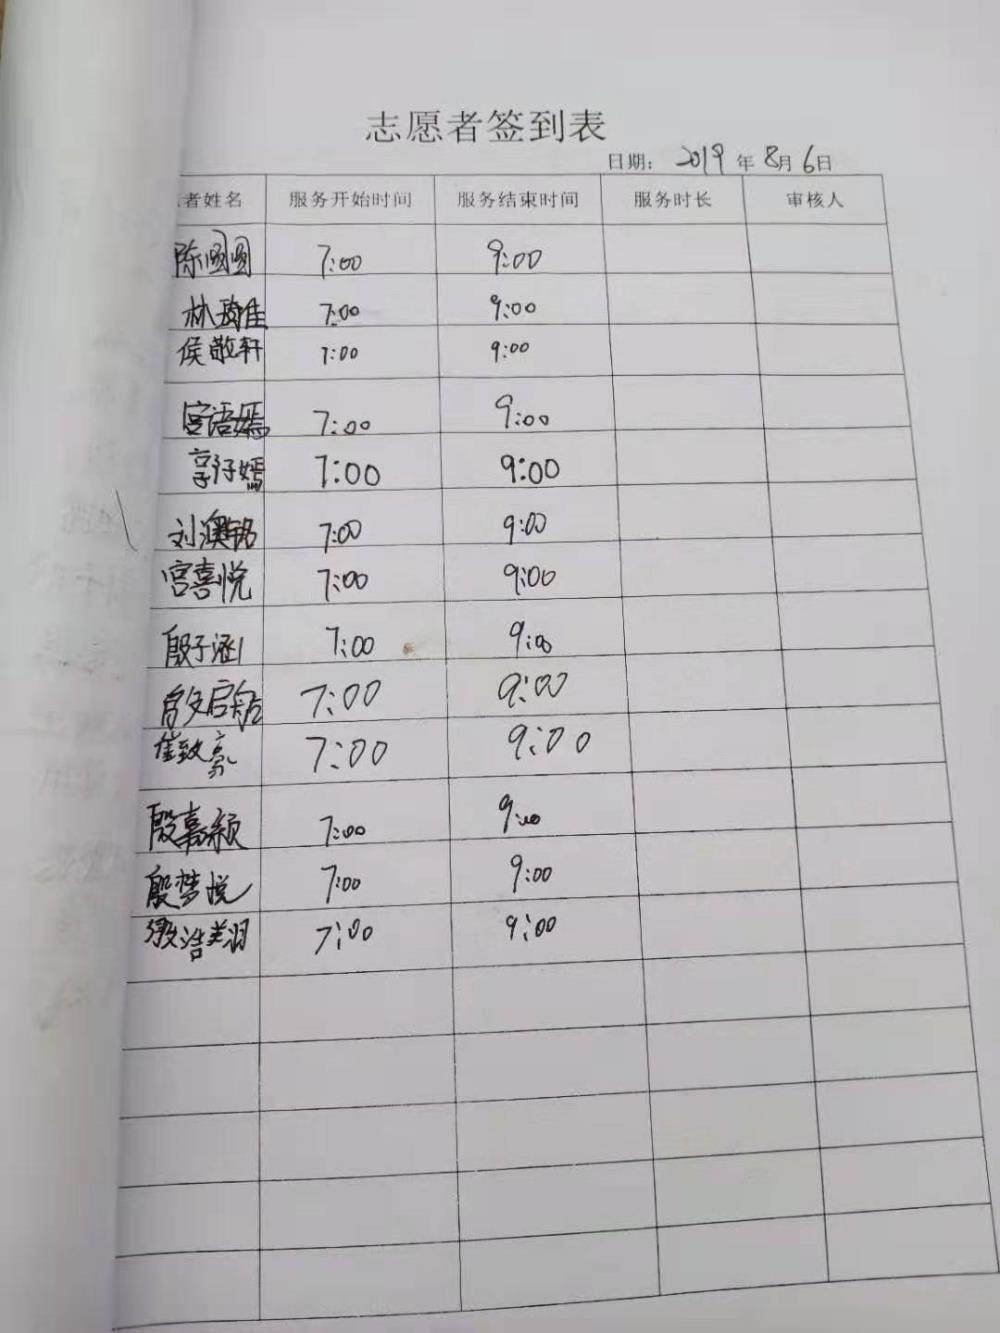 志愿者签到表
日期： 2019 年 8月 6日
者姓名 服务开始时间 服务结束时间 服务时长 审核人
陈圆圆 7:00 9:00
林琦佳 7:00 9:00
侯敬轩 7:00 9:00
宫语嫣 7:00 9:00
嫣 7:00 9:00
刘澳铭 7:00 9:00
宫喜悦 7:00 9:00
殷子涵 7:00 9:00
启 7:00 9:00
崔致豪 7:00 9:00
殷嘉颖 7:00 9:00
殷梦悦 7:00 9:00
浩 7:00 9:00